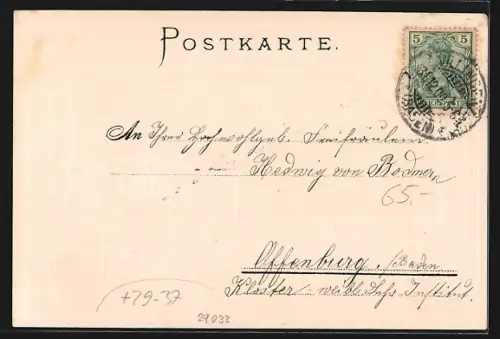 POSTKARTE.
5 5
An Ihrer Hochwohlgeb. Freifräulein
Hedwig von Bodman
65.-
Offenburg, i/Baden
Kloster - weibl. Lehr-Institut.
+29-37
29033